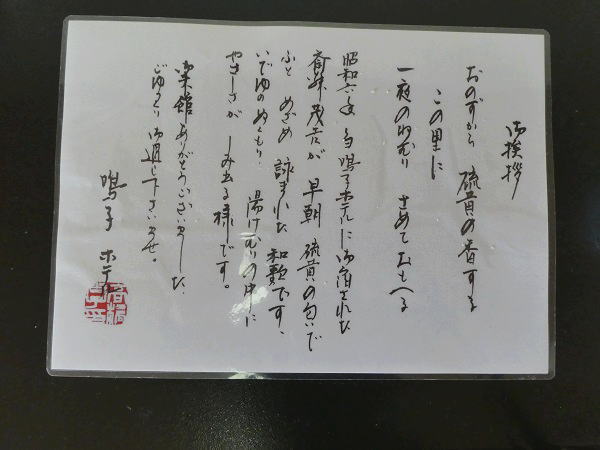 御挨拶
おのずから 硫黄の香する
この里に
一夜のねむり さめておもへる
昭和六年 当鳴子ホテルに御泊された
斎藤茂吉が 早朝 硫黄の匂いで
ふと めざめ 詠まれた 和歌です。
いでゆのぬくもり 湯けむりの中に
やさしさが しみ出る様です。
御来館ありがとうございました
ごゆっくり御過し下さいませ。
鳴子 ホテル